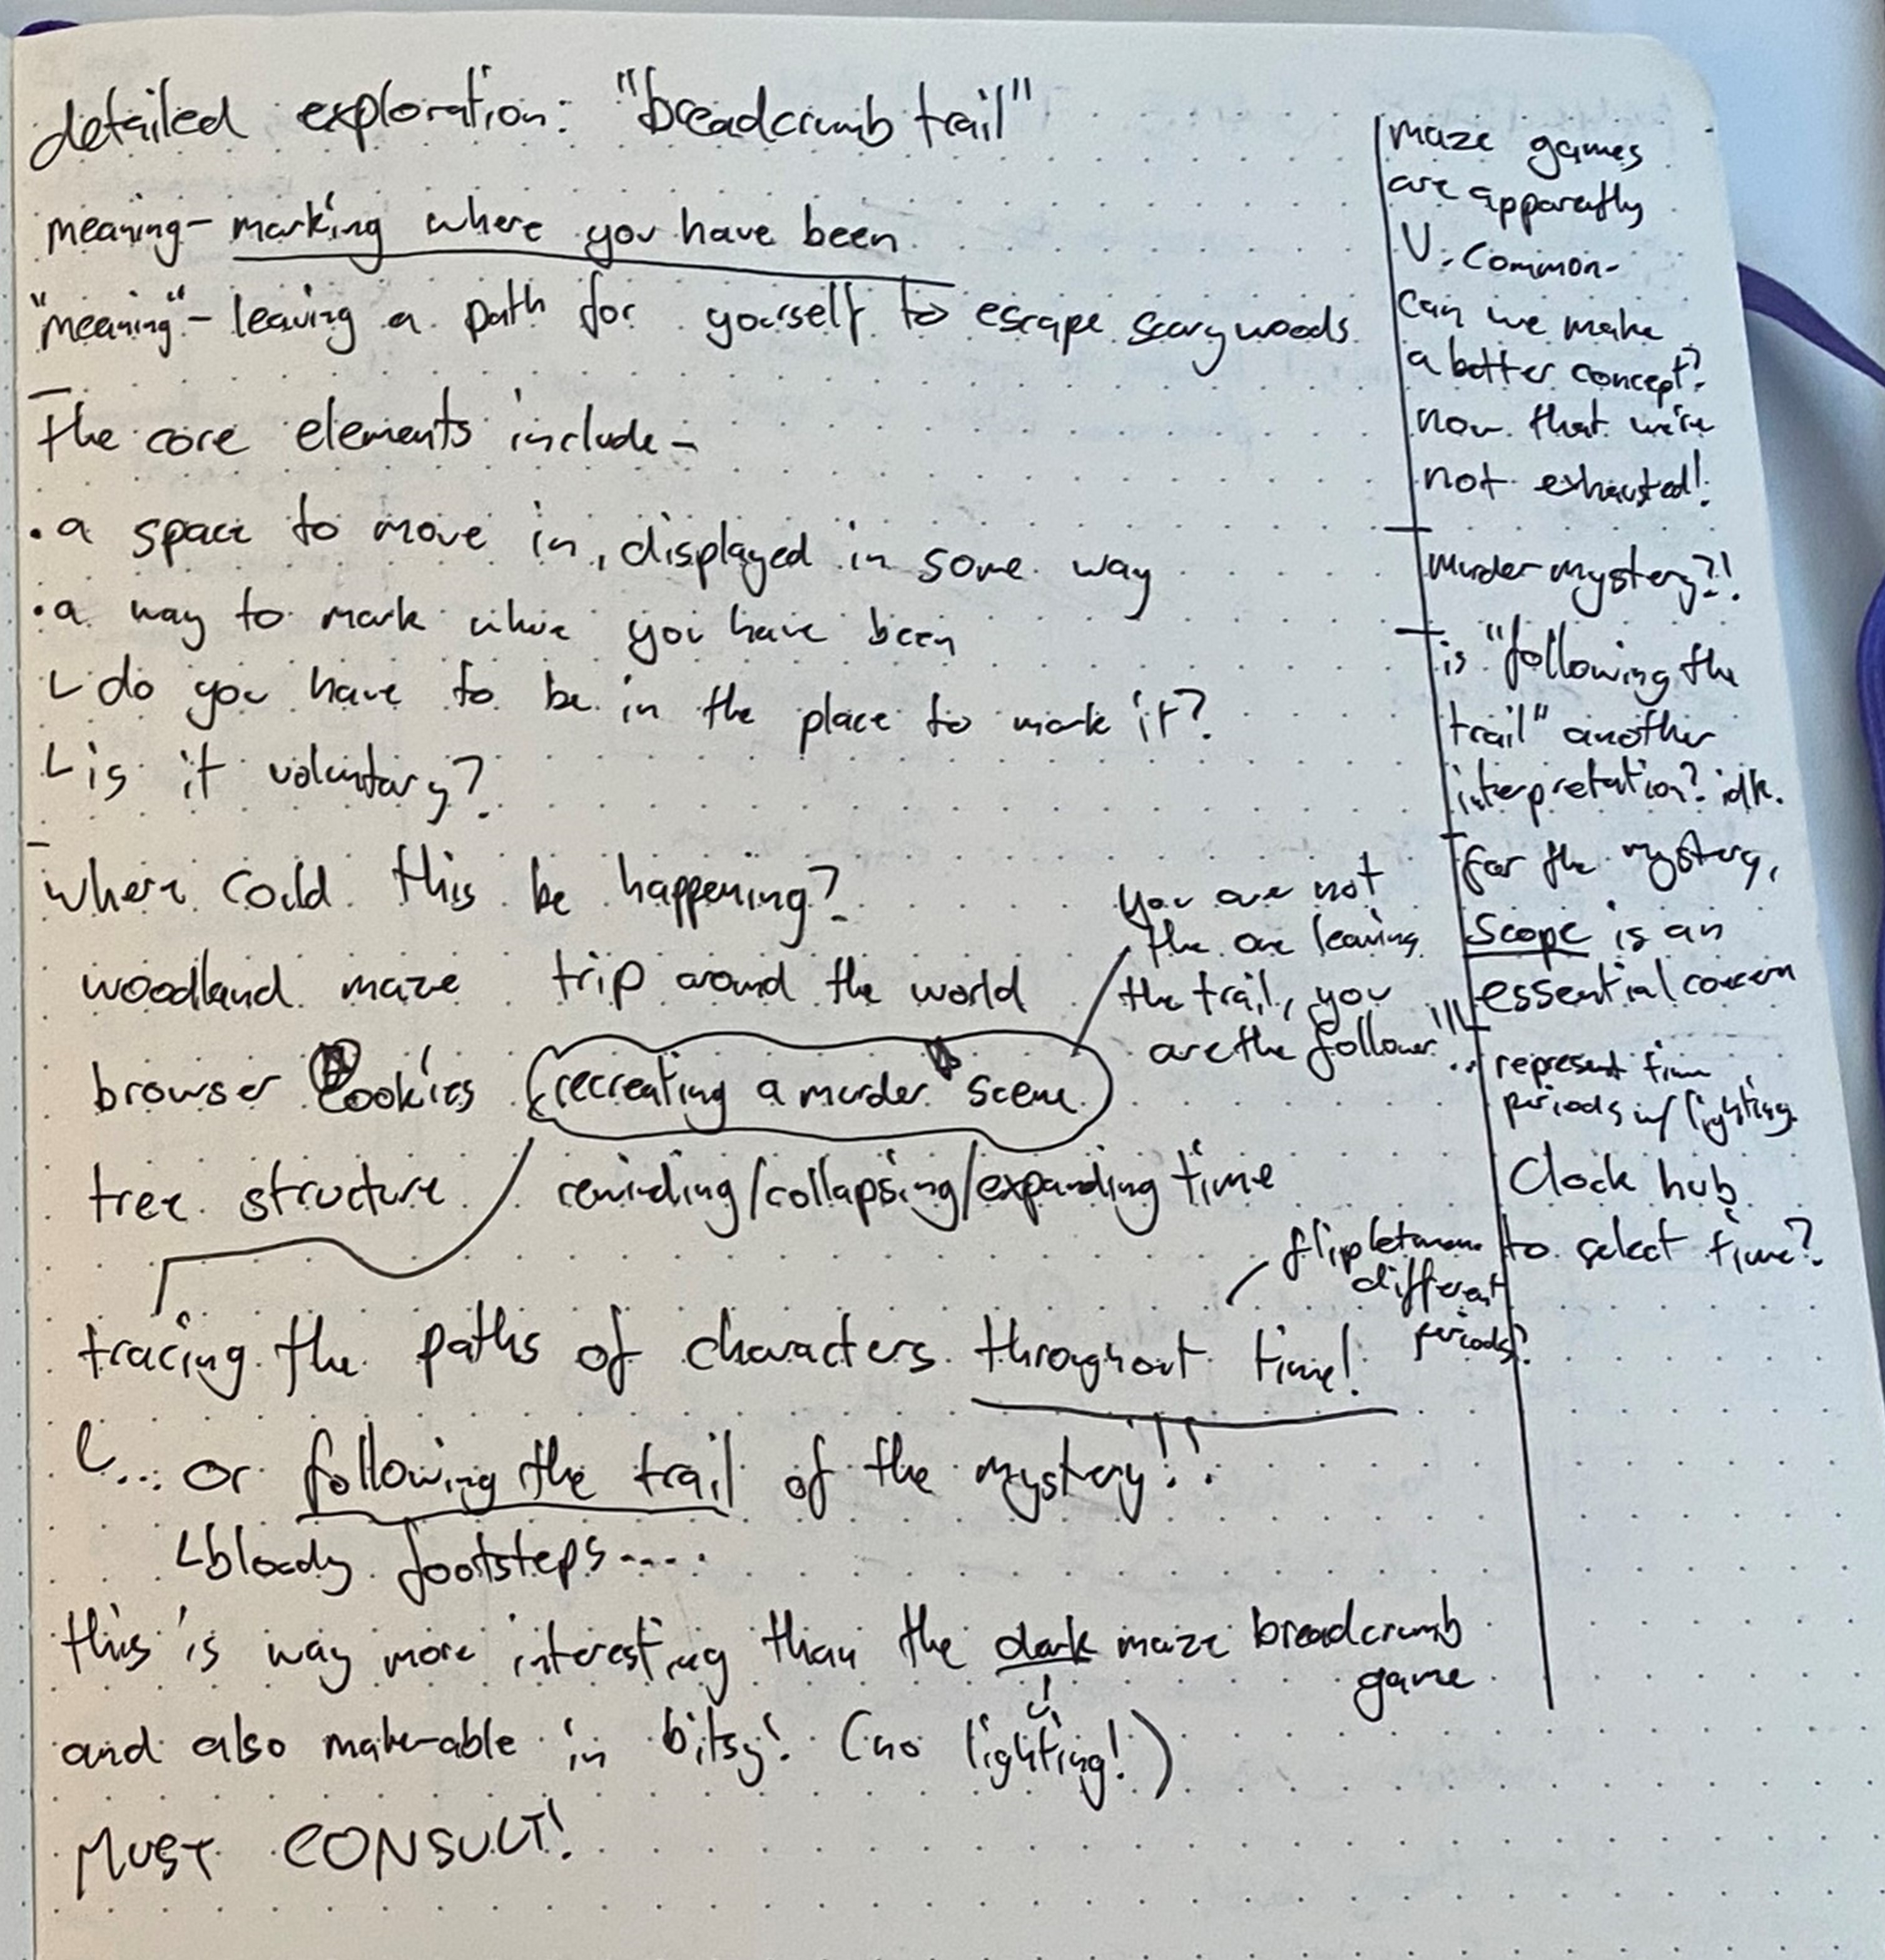 detailed exploration: "breadcrumb trail"
meaning - marking where you have been
"meaning" - leaving a path for yourself to escape scary woods
The core elements include -
• a space to move in, displayed in some way
• a way to mark where you have been
└ do you have to be in the place to mark it?
└ is it voluntary?
where could this be happening?
woodland maze trip around the world
browser cookies recreating a murder scene
tree structure rewinding/collapsing/expanding time
you are not
the one leaving
the trail, you
are the follower!!!
tracing the paths of characters throughout time!
flip between
different
periods?
└... or following the trail of the mystery!!
└ bloody footsteps....
this is way more interesting than the dark maze breadcrumb
game
and also make-able in bitsy! (no lighting!)
MUST CONSULT!
maze games
are apparently
V. Common-
Can we make
a better concept?
now that we're
not exhausted!
murder mystery?!
is "following the
trail" another
interpretation? idk.
for the mystery,
scope is an
essential concern
represent time
periods w/ lighting
Clock hub
to select time?